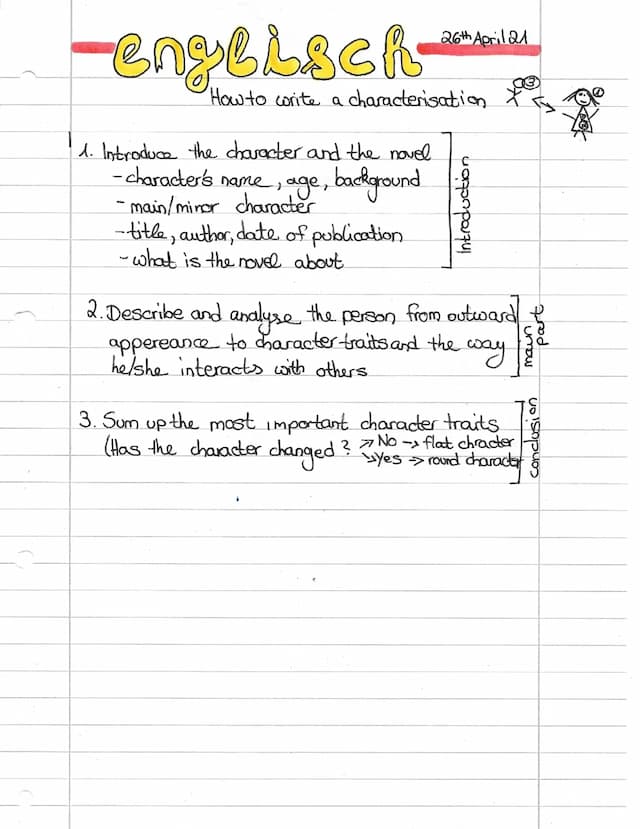 englisch 26th April 21
How to write a characterisation
1. Introduce the character and the novel
- character's name, age, background
- main/minor character
- title, author, date of publication
- what is the novel about
Introduction
2. Describe and analyse the person from outward
appereance to character traits and the way
he/she interacts with others
main part
3. Sum up the most important character traits
(Has the character changed? ↗ No → flat chracter
↘ Yes → round character
conclusion